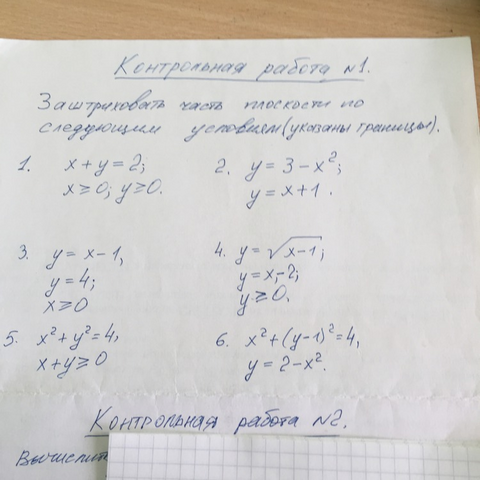 Контрольная работа №1.
Заштриховать часть плоскости по
следующим условиям (указаны границы).
1. x + y = 2; 2. y = 3 - x²;
x ≥ 0; y ≥ 0. y = x + 1.
3. y = x - 1, 4. y = √(x-1);
y = 4; y = x - 2;
x ≥ 0 y ≥ 0.
5. x² + y² = 4, 6. x² + (y-1)² = 4,
x + y ≥ 0 y = 2 - x².
Контрольная работа №2.